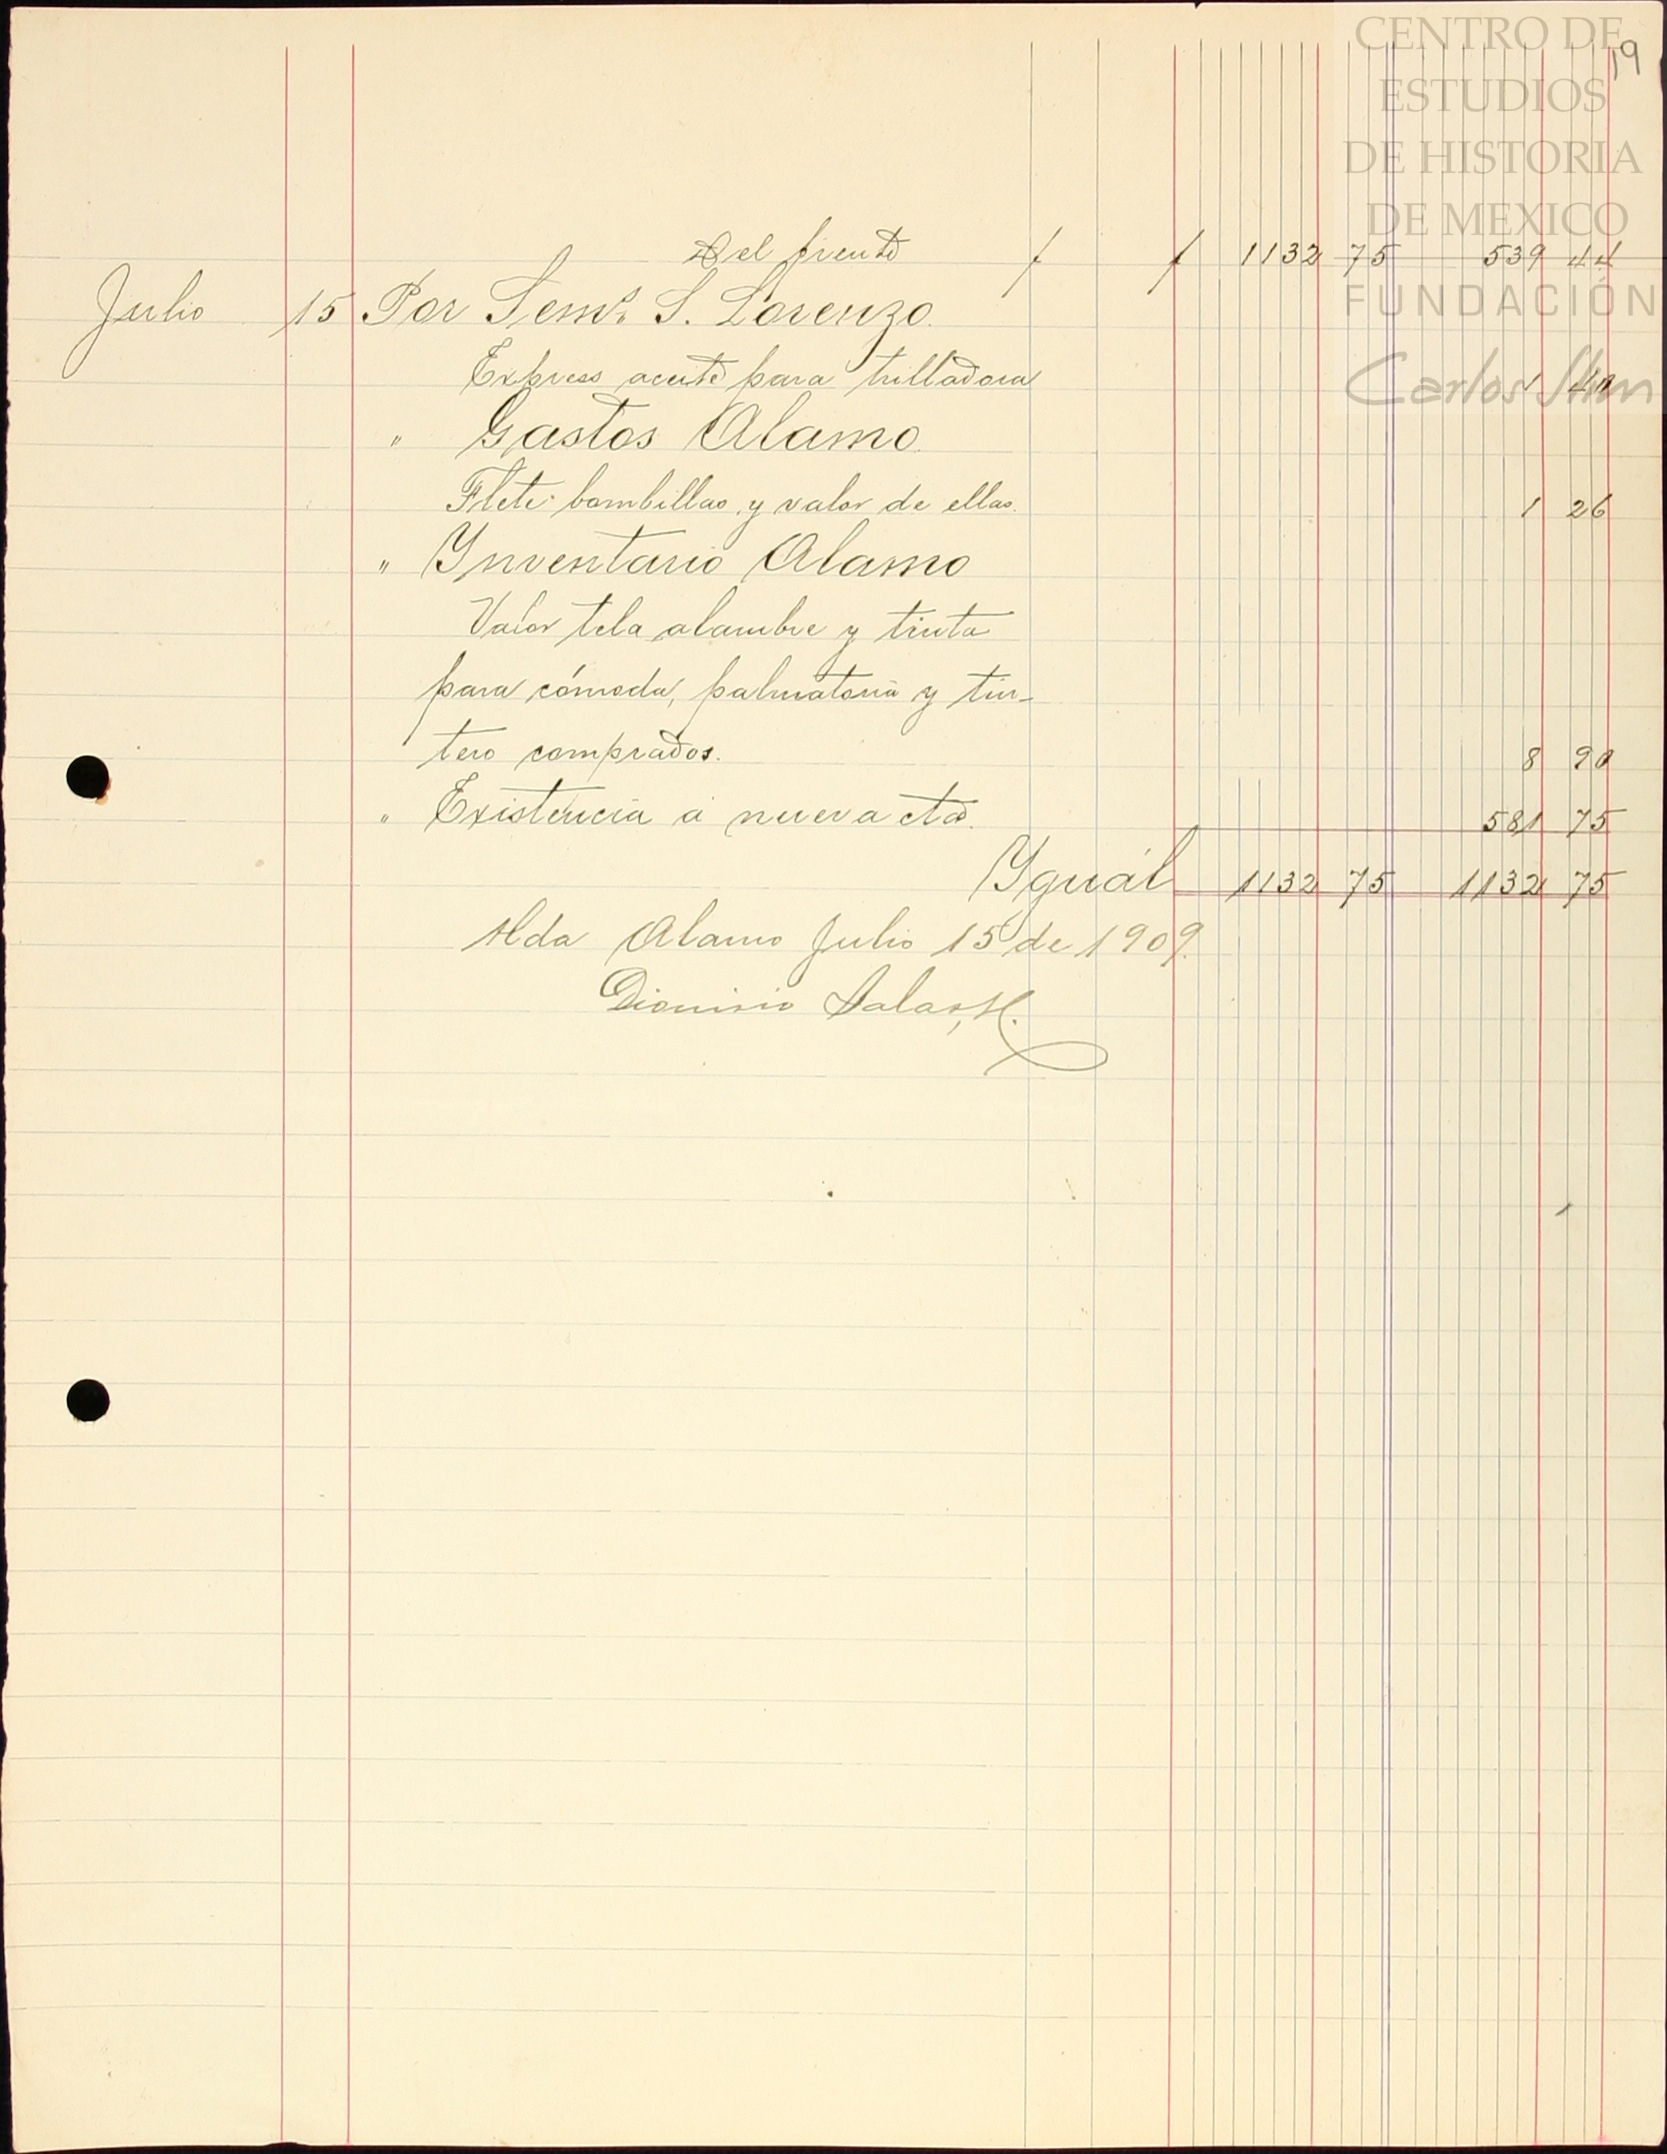 CENTRO DE
ESTUDIOS
DE HISTORIA
DE MEXICO
FUNDACIÓN
Carlos Slim
19
Del frente 1132 75 539 44
Julio 15 Por Sem. S. Lorenzo.
Express aceite para trilladora 1 40
" Gastos Alamo.
Flete bombillas y valor de ellas. 1 26
" Ynventario Alamo
Valor tela alambre y tinta
para cómoda, palmatoria y tin-
tero comprados. 8 90
" Existencia á nueva cta. 581 75
Yguál 1132 75 1132 75
Hda Alamo Julio 15 de 1909.
Dionisio Salas, H.